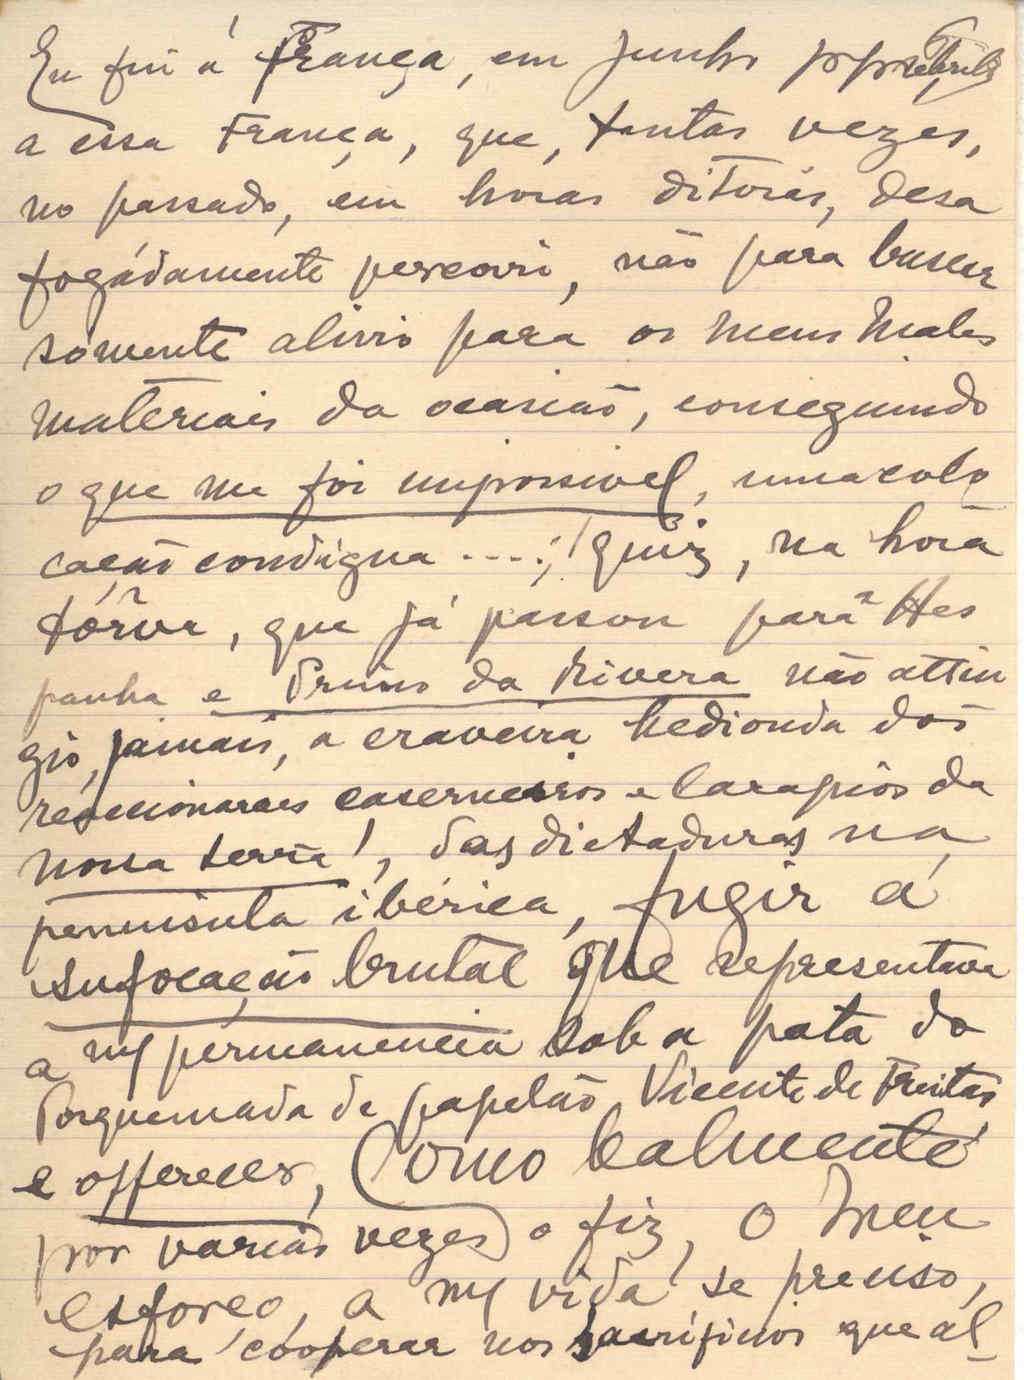 Eu fui á França, em Junho
a essa França, que, tantas vezes,
no passado, em horas ditosas, desa
fogádamente percorri, não para buscar
sómente alivio para os meus males
materiais da ocasião, conseguindo
o que me foi impossivel, uma colo
cação condigna ....; quiz, na hora
tôrva, que já passou para Hes
panha e Primo da Rivera não attin
gio, jamais, a craveira hedionda dos
reacionarios caserneiros e larapios da
nossa terra!, das dictaduras na
peninsula ibérica, fugir á
sufocação brutal que representava
a mª permanencia sob a pata do
Torquemada de papelão, Vicente de Freitas,
e offerecer, (como lealmente
por varias vezes) o fiz, o meu
esforço, a mª vida, se preciso,
para cooperar nos sacrificios que al_